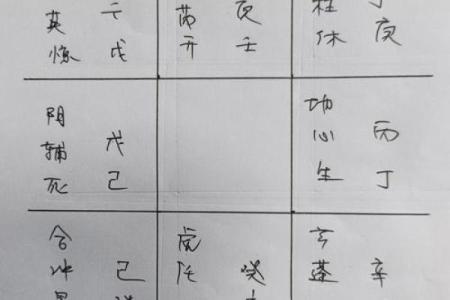 英 壬
惊 戊
芮 庚
开 壬
柱 丁
休 庚
阴
辅 戊
死 己
地
心 丙
生 丁
合
冲 己
虎
任 癸
玄
蓬 辛